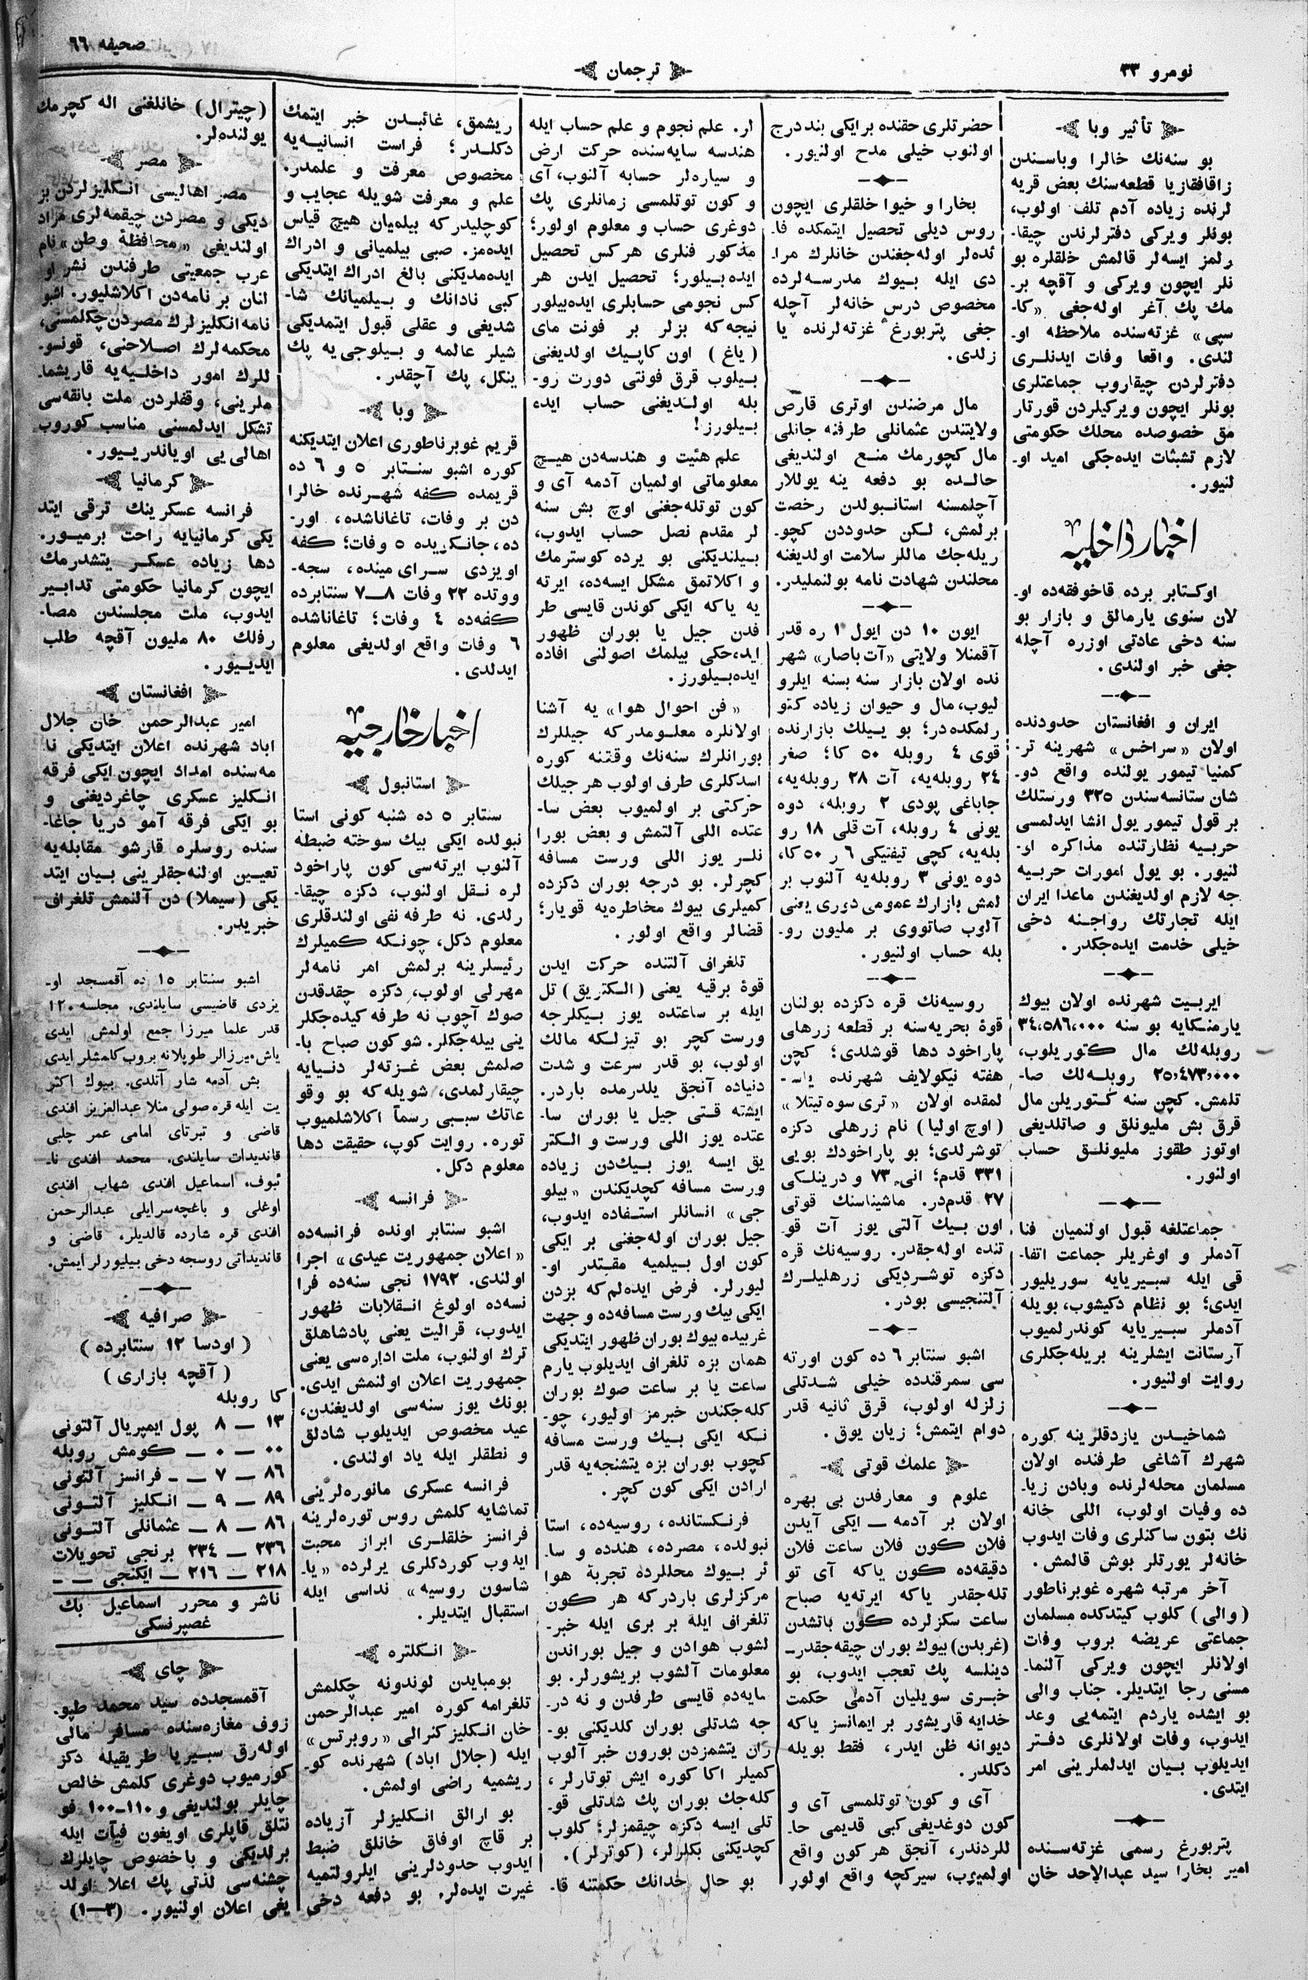 نومرو ٣٣
ترجمان
صحیفه ٦٦
تأثیر وبا
بو سنه‌نك خالرا وباسندن
زاقافقازیا قطعه‌سنك بعض قریه
لرنده زیاده آدم تلف اولوب،
بونلر ویركی دفترلرندن چیقا-
رلمز ایسه‌لر قالمش خلقلره بو
نلر ایچون ویركی و آقچه بر-
مك پك آغر اوله‌جغی «كا-
سپی» غزته‌سنده ملاحظه او-
لندی. واقعا وفات ایدنلری
دفترلردن چیقاروب جماعتلری
بونلر ایچون ویركیلردن قورتار
مق خصوصده محلك حكومتی
لازم تشبثات ایده‌جكی امید او-
لنیور.
اخبار داخلیه
اوكتابر برده قاخوفقه‌ده او-
لان سنوی یارمالق و بازار بو
سنه دخی عادتی اوزره آچله
جغی خبر اولندی.
ایران و افغانستان حدودنده
اولان «سراخس» شهرینه تر-
كمنیا تیمور یولنده واقع دو-
شان ستانسه‌سندن ٣٢٥ ورستلك
بر قول تیمور یول انشا ایدلمسی
حربیه نظارتنده مذاكره او-
لنیور. بو یول امورات حربیه
جه لازم اولدیغندن ماعدا ایران
ایله تجارتك رواجنه دخی
خیلی خدمت ایده‌جكدر.
ایربیت شهرنده اولان بیوك
یارمنكایه بو سنه ٣٤،٥٨٦،٠٠٠
روبله‌لك مال كتوریلوب،
٢٥،٤٧٣،٠٠٠ روبله‌لك صا-
تلمش. كچن سنه كتوریلن مال
قرق بش ملیونلق و صاتلدیغی
اوتوز طقوز ملیونلق حساب
اولنور.
جماعتلغه قبول اولنمیان فنا
آدملر و اوغریلر جماعت اتفا-
قی ایله سبیریایه سوریلیور
ایدی؛ بو نظام دكیشوب، بویله
آدملر سبیریایه كوندرلمیوب
آرستانت ایشلرینه بریله‌جكلری
روایت اولنیور.
شماخیدن یازدقلرینه كوره
شهرك آشاغی طرفنده اولان
مسلمان محله‌لرنده وبادن زیا-
ده وفیات اولوب، اللی خانه
نك بتون ساكنلری وفات ایدوب
خانه‌لر یورتلر بوش قالمش.
آخر مرتبه شهره غوبرناطور
(والی) كلوب كیتدكده مسلمان
جماعتی عریضه بروب وفات
اولانلر ایچون ویركی آلنما-
مسنی رجا ایتدیلر. جناب والی
بو ایشده یاردم ایتمه‌یی وعد
ایدوب، وفات اولانلری دفتر
ایدیلوب بیان ایدلملرینی امر
ایتدی.
پتربورغ رسمی غزته‌سنده
امیر بخارا سید عبدالاحد خان
حضرتلری حقنده برایكی بند درج
اولنوب خیلی مدح اولنیور.
بخارا و خیوا خلقلری ایچون
روس دیلی تحصیل ایتمكده فا-
ئده‌لر اوله‌جغندن خانلرك مرا-
دی ایله بیوك مدرسه‌لرده
مخصوص درس خانه‌لر آچله
جغی پتربورغ غزته‌لرنده یا
زلدی.
مال مرضندن اوتری قارص
ولایتندن عثمانلی طرفنه جانلی
مال كچورمك منع اولندیغی
حالده بو دفعه ینه یوللار
آچلمسنه استانبولدن رخصت
برلمش، لكن حدوددن كچو-
ریله‌جك ماللر سلامت اولدیغنه
محلندن شهادت نامه بولنملیدر.
ایون ١٠ دن ایول ١ ره قدر
آقمنلا ولایتی «آت‌باصار» شهر
نده اولان بازار سنه بسنه ایلرو
لیوب، مال و حیوان زیاده كتو
رلمكده‌در؛ بو ییلك بازارنده
قوی ٤ روبله ٥٠ كا؛ صغر
٢٤ روبله‌یه، آت ٢٨ روبله‌یه،
جاباغی پودی ٢ روبله، دوه
یونی ٤ روبله، آت قلی ١٨ رو
بله‌یه، كچی تیفتیكی ٦ ر ٥٠ كا،
دوه یونی ٣ روبله‌یه آلنوب بر
لمش بازارك عمومی دوری یعنی
آلوب صاتووی بر ملیون رو-
بله حساب اولنیور.
روسیه‌نك قره دكزده بولنان
قوهٔ بحریه‌سنه بر قطعه زرهلی
پاراخود دها قوشلدی؛ كچن
هفته نیكولایف شهرنده یاپ-
لمقده اولان «تری سوه تیتلا»
(اوچ اولیا) نام زرهلی دكزه
توشرلدی؛ بو پاراخودك بویی
٣٣١ قدم؛ انی، ٧٣ و درینلكی
٢٧ قدم‌در. ماشیناسنك قوتی
اون بیك آلتی یوز آت قو-
تنده اوله‌جقدر. روسیه‌نك قره
دكزه توشردیكی زرهلیلرك
آلتنجیسی بودر.
اشبو سنتابر ٦ ده كون اورته
سی سمرقندده خیلی شدتلی
زلزله اولوب، قرق ثانیه قدر
دوام ایتمش؛ زیان یوق.
علمك قوتی
علوم و معارفدن بی بهره
اولان بر آدمه — ایكی آیدن
فلان كون فلان ساعت فلان
دقیقه‌ده كون یاكه آی تو
تله‌جقدر یاكه ایرته‌یه صباح
ساعت سكزلرده كون باتشدن
(غربدن) بیوك بوران چیقه‌جقدر—
دینلسه پك تعجب ایدوب، بو
خبری سویلیان آدمی حكمت
خدایه قاریشور بر ایمانسز یاكه
دیوانه ظن ایدر، فقط بویله
دكلدر.
آی و كون توتلمسی آی و
كون دوغدیغی كبی قدیمی حا-
للردندر، آنجق هر كون واقع
اولمیوب، سیركچه واقع اولور
لر. علم نجوم و علم حساب ایله
هندسه سایه‌سنده حركت ارض
و سیاره‌لر حسابه آلنوب، آی
و كون توتلمسی زمانلری پك
دوغری حساب و معلوم اولور؛
مذكور فنلری هر كس تحصیل
ایده‌بیلور؛ تحصیل ایدن هر
كس نجومی حسابلری ایده‌بیلور
نیجه‌كه بزلر بر فونت مای
(یاغ) اون كاپیك اولدیغنی
بیلوب قرق فونتی دورت رو-
بله اولدیغنی حساب اید،
بیلورز!
علم هئیت و هندسه‌دن هیچ
معلوماتی اولمیان آدمه آی و
كون توتله‌جغنی اوچ بش سنه
لر مقدم نصل حساب ایدوب،
بیلندیكنی بو یرده كوسترمك
و اكلاتمق مشكل ایسه‌ده، ایرته
یه یاكه ایكی كوندن قایسی طر
فدن جیل یا بوران ظهور
اید،جكی بیلمك اصولنی افاده
ایده‌بیلورز.
«فن احوال هوا» یه آشنا
اولانلره معلومدركه جیللرك
بورانلرك سنه‌نك وقتنه كوره
اسدكلری طرف اولوب هر جیلك
حركتی بر اولمیوب بعض سا-
عتده اللی آلتمش و بعض بورا
نلر یوز اللی ورست مسافه
كچرلر. بو درجه بوران دكزده
كمیلری بیوك مخاطره‌یه قویار؛
قضالر واقع اولور.
تلغراف آلتنده حركت ایدن
قوهٔ برقیه یعنی (الكتریق) تل
ایله بر ساعتده یوز بیكلرجه
ورست كچر بو تیزلكه مالك
اولوب، بو قدر سرعت و شدت
دنیاده آنجق یلدرمده باردر.
ایشته قتی جیل یا بوران سا-
عتده یوز اللی ورست و الكتر
یق ایسه یوز بیك‌دن زیاده
ورست مسافه كچدیكندن «بیلو
جی» انسانلر استفاده ایدوب،
جیل بوران اوله‌جغنی بر ایكی
كون اول بیلمیه مقتدر او-
لیورلر. فرض ایده‌لم‌كه بزدن
ایكی بیك ورست مسافه‌ده و جهت
غربیده بیوك بوران ظهور ایتدیكی
همان بزه تلغراف ایدیلوب یارم
ساعت یا بر ساعت صوك بوران
كله‌جكندن خبرمز اولیور، چو-
نكه ایكی بیك ورست مسافه
كچوب بوران بزه یتشنجه‌یه قدر
ارادن ایكی كون كچر.
فرنكستانده، روسیه‌ده، استا
نبولده، مصرده، هندده و سا-
ئر بیوك محللرده تجربهٔ هوا
مركزلری باردركه هر كون
تلغراف ایله بر بری ایله خبر-
لشوب هوادن و جیل بوراندن
معلومات آلشوب بریشورلر. بو
سایه‌ده قایسی طرفدن و نه در-
جه شدتلی بوران كلدیكنی بو-
ران یتشمزدن بورون خبر آلوب
كمیلر اكا كوره ایش توتارلر،
كله‌جك بوران پك شدتلی قو-
تلی ایسه دكزه چیقمزلر؛ كلوب
كچدیكنی بكلرلر، (كوترلر).
بو حال خدانك حكمتنه قا-
ریشمق، غائبدن خبر ایتمك
دكلدر؛ فراست انسانیه‌یه
مخصوص معرفت و علمدر.
علم و معرفت شویله عجایب و
كوچلیدركه بیلمیان هیچ قیاس
ایده‌مز. صبی بیلمیانی و ادراك
ایده‌مدیكنی بالغ ادراك ایتدیكی
كبی نادانك و بیلمیانك شا-
شدیغی و عقلی قبول ایتمدیكی
شیلر عالمه و بیلوجی‌یه پك
ینكل، پك آچقدر.
وبا
قریم غوبرناطوری اعلان ایتدیكنه
كوره اشبو سنتابر ٥ و ٦ ده
قریمده كفه شهرنده خالرا
دن بر وفات، تاغاناشده، اور-
ده، جانكریده ٥ وفات؛ كفه
اویزدی سرای مینده، سجه-
ووتده ٢٢ وفات ٨—٧ سنتابرده
كفه‌ده ٤ وفات؛ تاغاناشده
٦ وفات واقع اولدیغی معلوم
ایدلدی.
اخبار خارجیه
استانبول
سنتابر ٥ ده شنبه كونی استا
نبولده ایكی بیك سوخته ضبطه
آلنوب ایرته‌سی كون پاراخود
لره نقل اولنوب، دكزه چیقا-
رلدی. نه طرفه نفی اولندقلری
معلوم دكل، چونكه كمیلرك
رئیسلرینه برلمش امر نامه‌لر
مهرلی اولوب، دكزه چقدقدن
صوك آچوب نه طرفه كیده‌جكلر
ینی بیله‌جكلر. شو كون صباح با-
صلمش بعض غزته‌لر دنیایه
چیقارلمدی، شویله‌كه بو وقو
عاتك سببی رسماً اكلاشلمیوب
توره. روایت كوپ، حقیقت دها
معلوم دكل.
فرانسه
اشبو سنتابر اونده فرانسه‌ده
«اعلان جمهوریت عیدی» اجرا
اولندی. ١٧٩٢ نجی سنه‌ده فرا
نسه‌ده اولوغ انقلابات ظهور
ایدوب، قرالیت یعنی پادشاهلق
ترك اولنوب، ملت اداره‌سی یعنی
جمهوریت اعلان اولنمش ایدی.
بونك یوز سنه‌سی اولدیغندن،
عید مخصوص ایدیلوب شادلق
و نطقلر ایله یاد اولندی.
فرانسه عسكری مانوره‌لرینی
تماشایه كلمش روس توره‌لرینه
فرانسز خلقلری ابراز محبت
ایدوب كوردكلری یرلرده «یا-
شاسون روسیه» نداسی ایله
استقبال ایتدیلر.
انكلتره
بومبایدن لوندونه چكلمش
تلغرامه كوره امیر عبدالرحمن
خان انكلیز كنرالی «روبرتس»
ایله (جلال اباد) شهرنده كو-
ریشمیه راضی اولمش.
بو ارالق انكلیزلر آزیاده
بر قاچ اوفاق خانلق ضبط
ایدوب حدودلرینی ایلرولتمیه
غیرت ایده‌لر. بو دفعه دخی
(چیترال) خانلغنی اله كچرمك
یولنده‌لر.
مصر
مصر اهالیسی انكلیزلردن بز
دیكی و مصردن چیقمه‌لری مراد
اولندیغی «محافظهٔ وطن» نام
عرب جمعیتی طرفندن نشر او
لنان بر نامه‌دن اكلاشلیور. اشبو
نامه انكلیزلرك مصردن چكلمسنی،
محكمه‌لرك اصلاحنی، قونسو-
للرك امور داخلیه‌یه قاریشما-
ملرینی، وقفلردن ملت بانقه‌سی
تشكل ایدلمسنی مناسب كوروب
اهالی‌یی اویاندرییور.
كرمانیا
فرانسه عسكرینك ترقی ایتد
یكی كرمانیایه راحت برمیور.
دها زیاده عسكر یتشدرمك
ایچون كرمانیا حكومتی تدابیر
ایدوب، ملت مجلسندن مصا-
رفلك ٨٠ ملیون آقچه طلب
ایدییور.
افغانستان
امیر عبدالرحمن خان جلال
اباد شهرنده اعلان ایتدیكی نا-
مه‌سنده امداد ایچون ایكی فرقه
انكلیز عسكری چاغردیغنی و
بو ایكی فرقه آمو دریا جاغا-
سنده روسلره قارشو مقابله‌یه
تعیین اولنه‌جقلرینی بیان ایتد
یكی (سیملا) دن آلنمش تلغراف
خبریدر.
اشبو سنتابر ١٥ ده آقمسجد او-
یزدی قاضیسی سایلندی. مجلسه ١٢٠
قدر علما میرزا جمع اولمش ایدی
یاش میرزالر طوپلانه بروب كلمشلر ایدی
بش آدمه شار آتلدی. بیوك اكثر
یت ایله قره صولی منلا عبدالعزیز افندی
قاضی و تبرتای امامی عمر چلبی
قاندیدات سایلندی. محمد افندی نا-
ئبوف، اسماعیل افندی شهاب افندی
اوغلی و باغچه‌سرایلی عبدالرحمن
افندی قره شارده قالدیلر. قاضی و
قاندیداتی روسجه دخی بیلیورلر ایمش.
صرافیه
(اودسا ١٢ سنتابرده)
(آقچه بازاری)
كا روبله
١٣ — ٨ پول ایمپریال آلتونی
٠٠ — ٠ — كومش روبله
٨٦ — ٧ — فرانسز آلتونی
٨٩ — ٩ — انكلیز آلتونی
٨٦ — ٨ — عثمانلی آلتونی
٢٣٦ — ٢٣٤ برنجی تحویلات
٢١٨ — ٢١٦ — ایكنجی — -
ناشر و محرر اسماعیل بك
غصپرنسكی
چای
آقمسجدده سید محمد طپو-
زوف مغازه‌سنده مسافر مالی
اوله‌رق سبیریا طریقیله دكز
كورمیوب دوغری كلمش خالص
چایلر بولندیغی و ١١٠-١٠٠ فو
نتلق قاپلری اویغون فیآت ایله
برلدیكی و باخصوص چایلرك
چشنه‌سی لذتی پك اعلا اولد
یغی اعلان اولنیور. (٣—١)